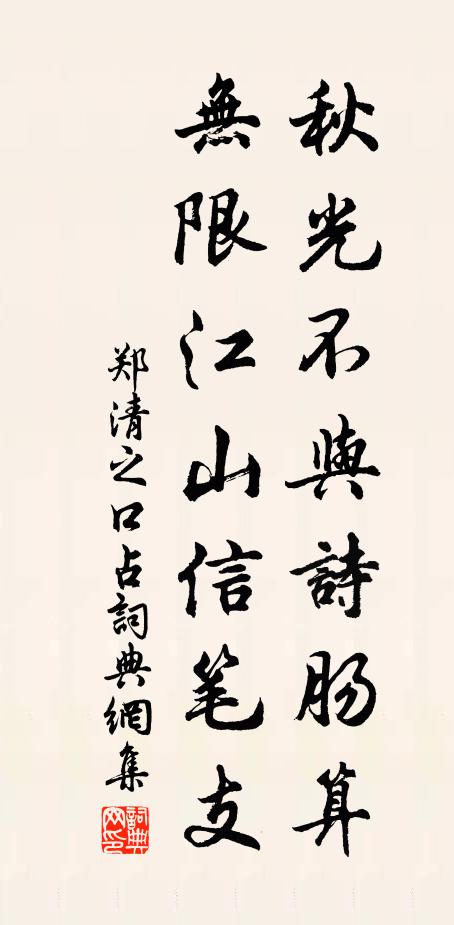 秋光不與詩肠算
無限江山信笔支
郑清之口占詞典網集
詞典網印